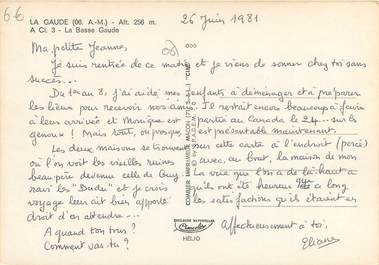 6€
LA GAUDE (06. A.-M.) - Alt. 256 m.
A Cl. 3 - La Basse Gaude
26 Juin 1981
Ma petite Jeanne,
Je suis rentrée de ce matin et je viens de sonner chez toi sans
succès...
Du 1er au 8, j'ai aidé mes enfants à déménager et à préparer
les lieux pour recevoir nos amis. Il restait encore beaucoup à faire
à leur arrivée et Monique est partie au Canada le 24... sur les
genoux ! Mais tout, ou presque, est présentable maintenant.
Les deux maisons se trouvent sur cette carte à l'endroit (percé)
où l'on voit les vieilles ruines avec, au bout, la maison de mon
beau père devenue celle de Guy. La vue que l'on a de là-haut a
ravi les "Dudu" et je crois qu'ils ont été heureux que ce long
voyage leur ait bien apporté les satisfactions qu'ils étaient en
droit d'en attendre...
A quand ton tour ?
Comment vas-tu ?
Affectueusement à toi,
Eliane
COMBIER IMPRIMEUR MACON
"CIM"
HELIO